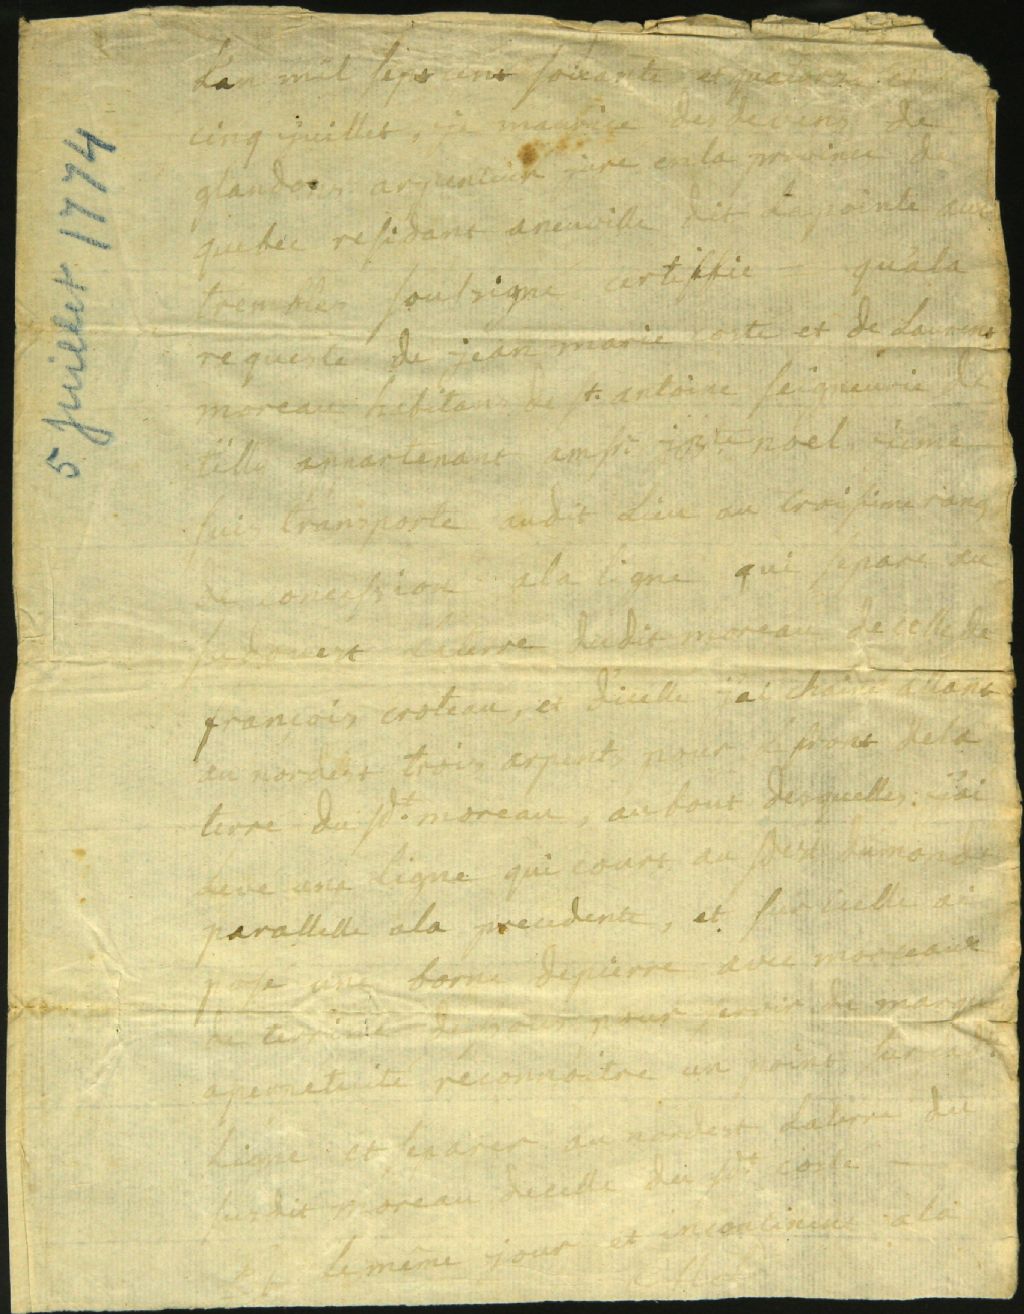 5 Juillet 1774
Lan mil sept cent soixante et quatorze
cinq juillet, je maurice desdeviens de
glandons arpenteur jure en la province de
quebec residant aneuville dit la pointe aux
trembles soussigné certiffie – qu'ala
requeste de jean marie coste et de Laurens
moreau habitan de st. antoine seigneurie de
tilly appartenant noel
suis transporte audit Lieu au troisieme rang
de concession ala ligne qui separe au
sudouest laterre dudit moreau de celle de
françois croteau, et d'icelle j'ai chainé allant
au nordest trois arpents pour le front dela
terre du sdt. moreau, au bout desquelles j'ai
Levé une ligne qui court au
parallelle ala precedente, et sur icelle ai
posé une borne depierre avec morceaux
de pour servir de marque
aperpetuité reconnoitre un point
Ligne et separer au nordest Laterre du
susdit moreau decelle du sdt. costé –
Et le même jour et incontinent ala